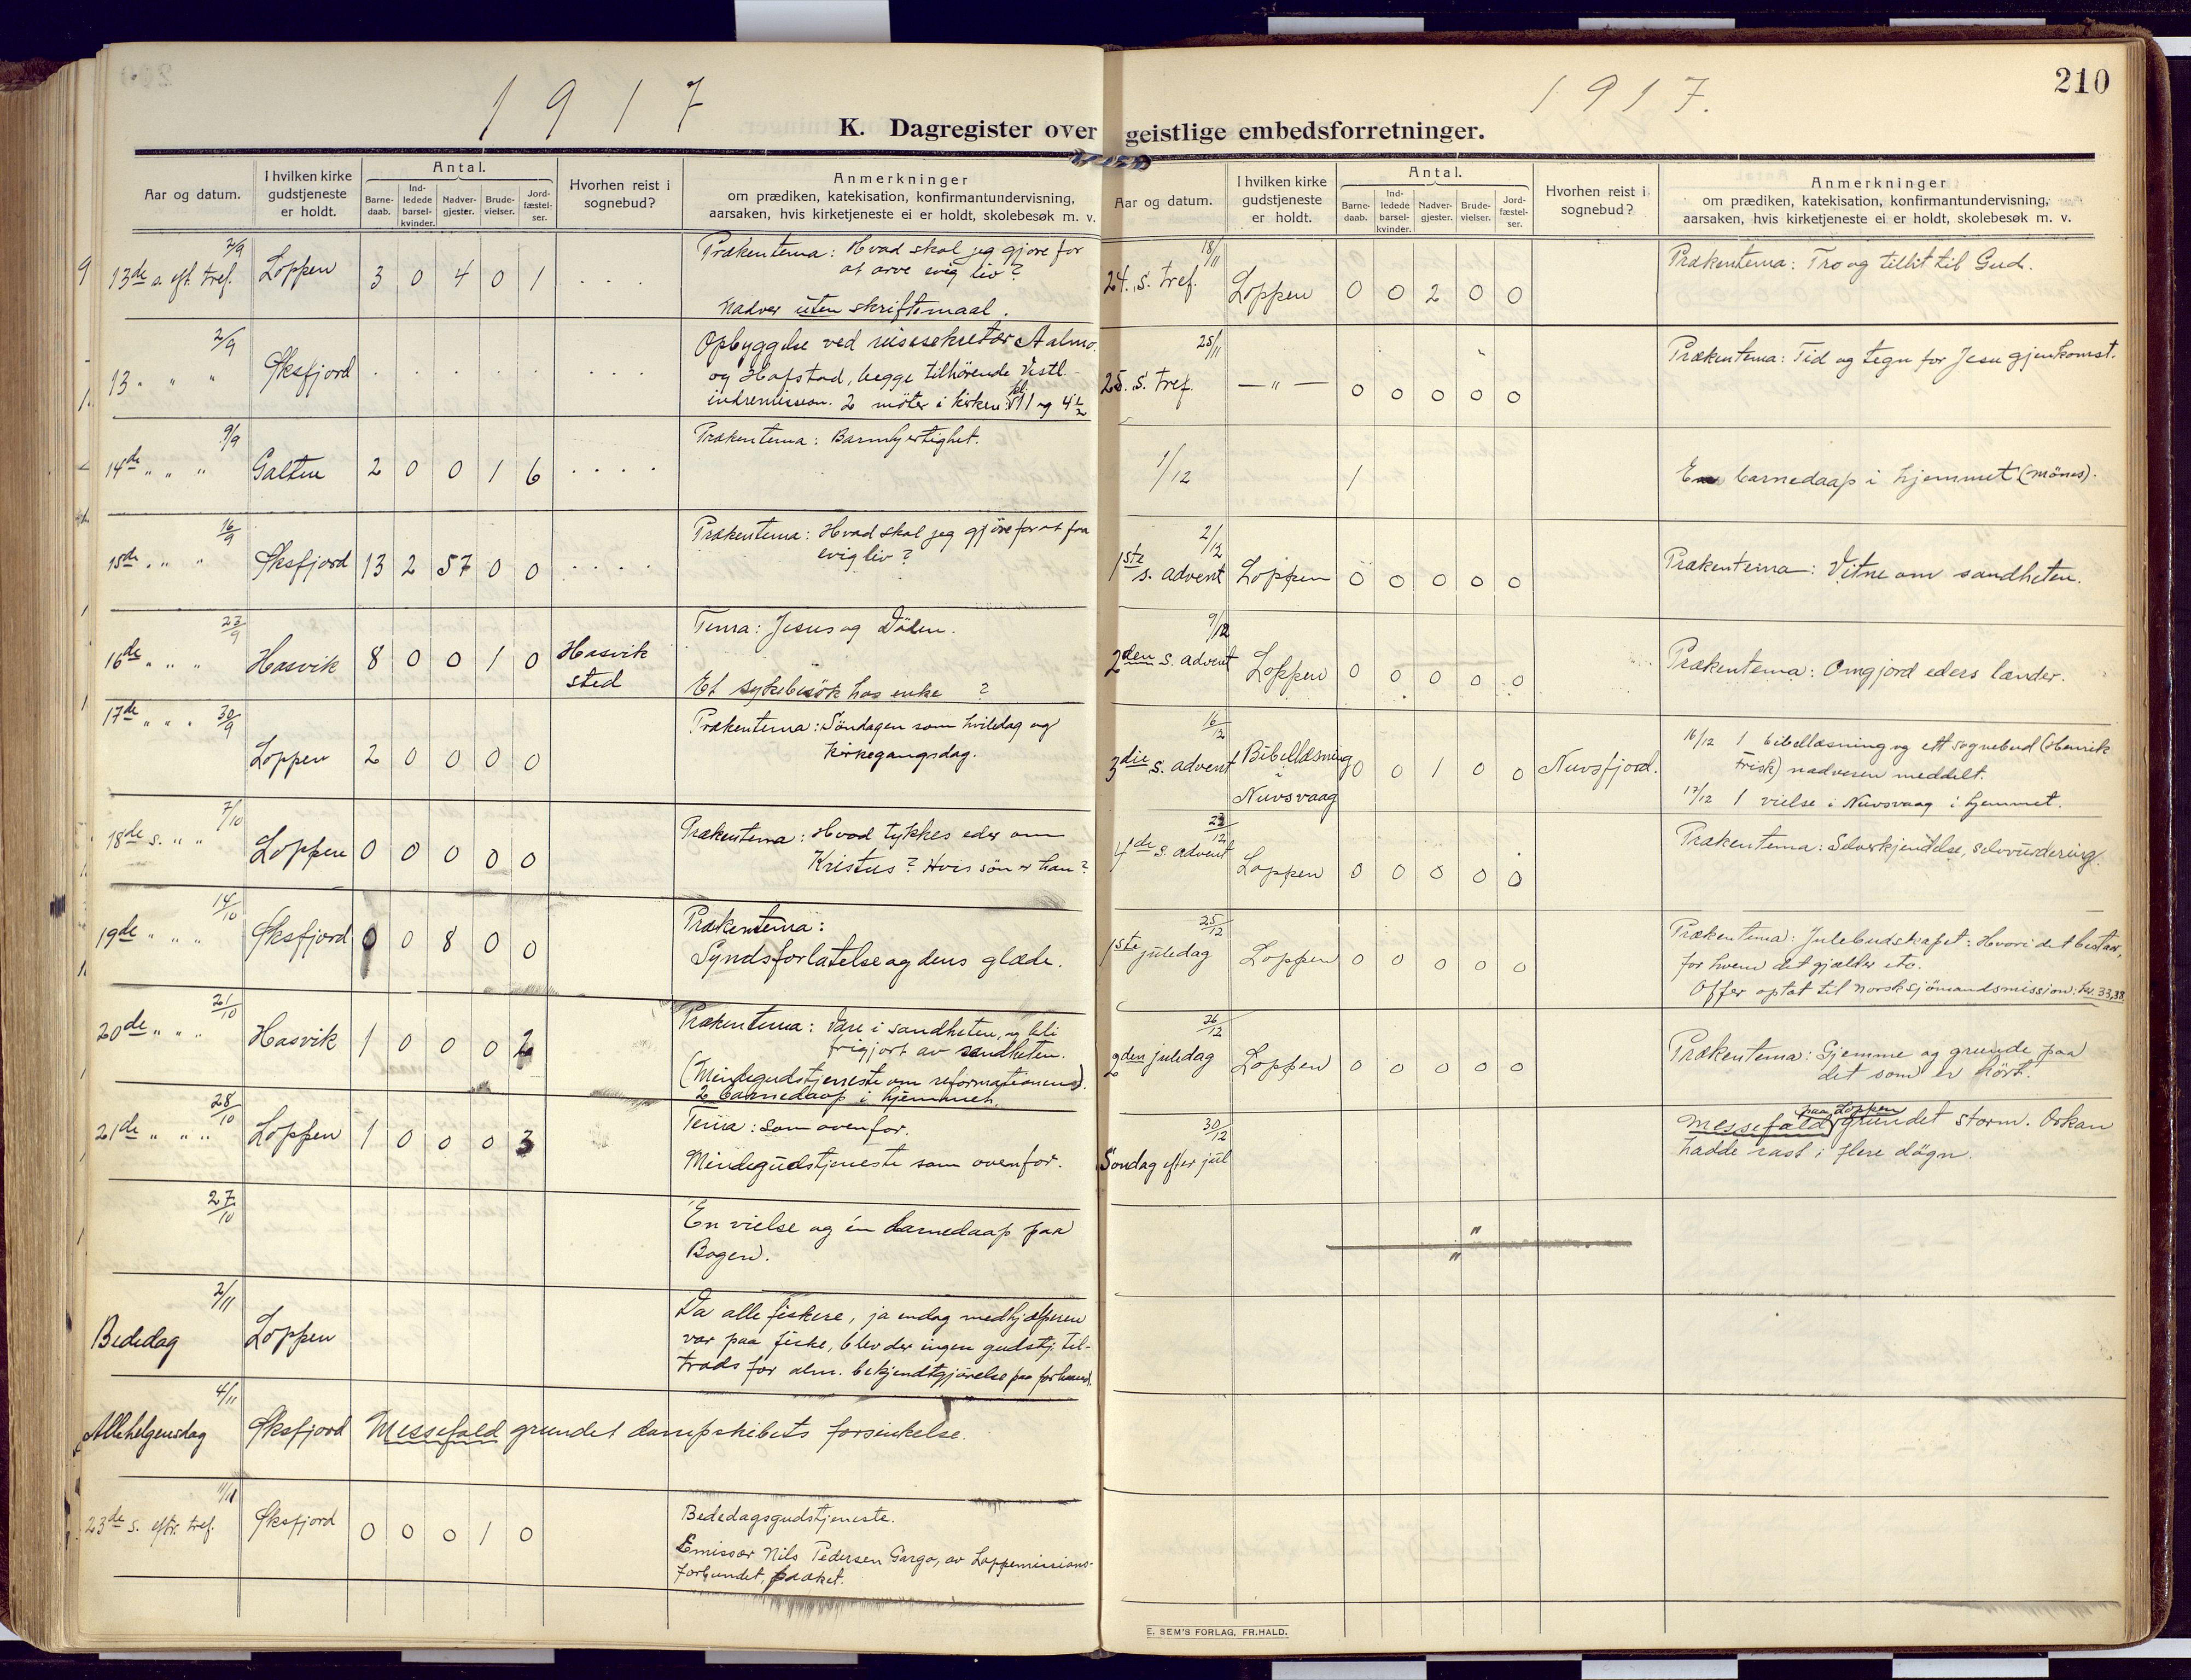 210
1917
1917.
K. Dagregister over geistlige embedsforretninger.
Aar og datum.
I hvilken kirke gudstjeneste er holdt.
Antal.
Barne-daab.
Ind-ledede barsel-kvinder.
Nadver-gjester.
Brude-vielser.
Jord-fæstel-ser.
Hvorhen reist i sognebud?
Anmerkninger
om prædiken, katekisation, konfirmantundervisning,
aarsaken, hvis kirketjeneste ei er holdt, skolebesøk m. v.
2/9
13de s. eft. tref. Loppen 3 0 4 0 1 . . .
Prækentema: Hvad skal jeg gjøre for
at arve evig liv?
Nadver uten skriftemaal.
2/9
13 " " " Øksfjord . . . . .
Opbyggelse ved reisesekretær Aalmo
og Hafstad, begge tilhørende Vestl.
indremission. 2 møter i kirken: kl. 11 og 4 1/2
9/9
14de " " " Galten 2 0 0 1 6 . . . .
Prækentema: Barmhjertighet.
16/9
15de " " " Øksfjord 13 2 57 0 0 . . . .
Prækentema: Hvad skal jeg gjøre for at faa
evig liv?
23/9
16de " " " Hasvik 8 0 0 1 0 Hasvik
sted
Tema: Jesus og Døden.
Et sykebesøk hos enke ?
17de " " " 30/9
Loppen 2 0 0 0 0
Prækentema: Søndagen som hviledag og
kirkegangsdag.
7/10
18de s. " " Loppen 0 0 0 0 0
Prækentema: Hvad tykkes eder om
Kristus? Hvis søn er han?
14/10
19de " " " Øksfjord 0 0 8 0 0
Prækentema:
Syndsforlatelse og dens glæde.
21/10
20de " " " Hasvik 1 0 0 0 2
Prækentema: Være i sandheten, og bli
frigjort av sandheten.
(Mindegudstjeneste om reformationens).
2 barnedaap i hjemmet.
28/10
21de " " " Loppen 1 0 0 0 3
Tema: Som ovenfor.
Mindegudstjeneste som ovenfor.
27/10
En vielse og én barnedaap paa
Bogen.
2/11
Bededag Loppen
Da alle fiskere, ja endog medhjælperen
var paa fiske, blev der ingen gudstj. til-
trods for alm. bekjendtgjørelse paa forhaand.
4/11
Allehelgensdag Øksfjord Messefald grundet dampskibets forsinkelse.
11/11
23de s. eftr. tref. Øksfjord 0 0 0 1 0
Bededagsgudstjeneste.
Emissær Nils Pedersen Garga, av Loppemissions-
forbundet, præket.
Aar og datum.
I hvilken kirke gudstjeneste er holdt.
Antal.
Barne-daab.
Ind-ledede barsel-kvinder.
Nadver-gjester.
Brude-vielser.
Jord-fæstel-ser.
Hvorhen reist i sognebud?
Anmerkninger
om prædiken, katekisation, konfirmantundervisning,
aarsaken, hvis kirketjeneste ei er holdt, skolebesøk m. v.
18/11
24. s. tref. Loppen 0 0 2 0 0
Prækentema: Tro og tillit til Gud.
25/11
25. s. tref. — " — 0 0 0 0 0
Prækentema: Tid og tegn for Jesu gjenkomst.
1/12 1
En barnedaap i hjemmet (Mönes).
2/12
1ste s. advent Loppen 0 0 0 0 0
Prækentema: Vitne om sandheten.
9/12
2den s. advent Loppen 0 0 0 0 0
Prækentema: Omgjord eders lænder.
16/12
3die s. advent Bibellæsning
i
Nuvsvaag
0 0 1 0 0 Nuvsfjord.
16/12 1 bibellæsning og ett sognebud (Henrik
Frisk) nadveren meddelt.
17/12 1 vielse i Nuvsvaag i hjemmet.
23/12
4de s. advent Loppen 0 0 0 0 0
Prækentema: Selverkjendelse, selvvurdering.
25/12
1ste juledag Loppen 0 0 0 0 0
Prækentema: Julebudskapet: Hvori det bestaar,
for hvem det gjælder etc.
Offer optat til norsk sjömandsmission: kr. 33,38
26/12
2den juledag Loppen 0 0 0 0 0
Prækentema: Gjemme og grunde paa
det som er hørt.
30/12
Söndag efter jul
Messefald paa Loppen grundet storm. Orkan
hadde rast i flere dögn.
" "
E. SEM'S FORLAG, FR.HALD.